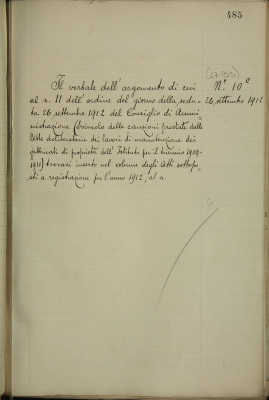 485
(27 903)
Il verbale dell'argomento di cui
al n. 11 dell'ordine del giorno della sedu-
ta 26 settembre 1912 del Consiglio di Ammi-
nistrazione (Svincolo delle cauzioni prestate dalle
Ditte assuntrici dei lavori di manutenzione dei
fabbricati di proprietà dell'Istituto per il biennio 1909-
1911) trovasi inserto nel volume degli Atti sottopo-
sti a registrazione per l'anno 1912, al n.
N.° 10 e
26 settembre 1912